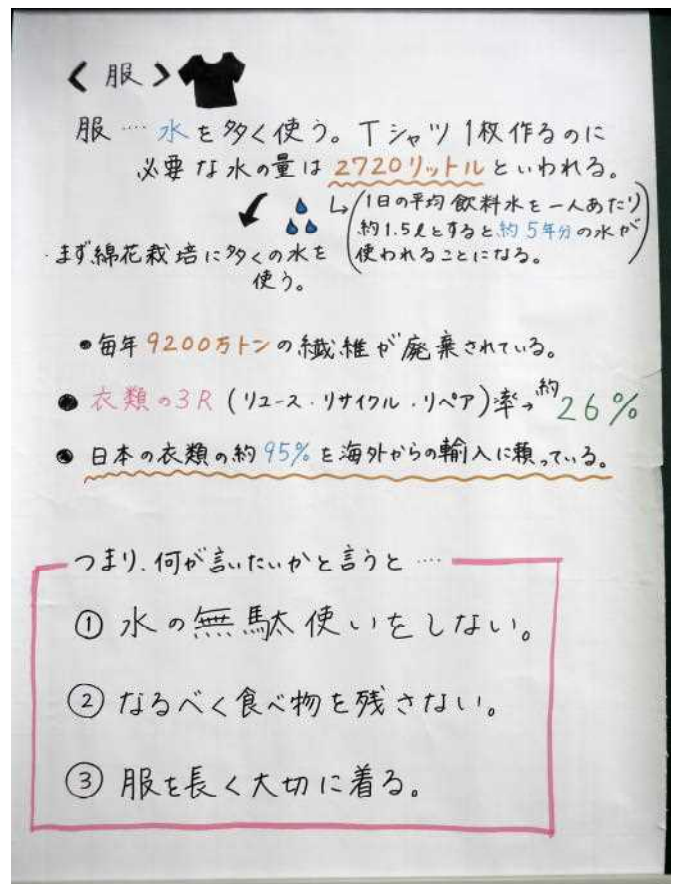 〈服〉
服…水を多く使う。Tシャツ1枚作るのに
必要な水の量は2720リットルといわれる。
↳(1日の平均飲料水を一人あたり
約1.5ℓとすると約5年分の水が
使われることになる。)
・まず綿花栽培に多くの水を
使う。
●毎年9200万トンの繊維が廃棄されている。
●衣類の3R(リユース・リサイクル・リペア)率→約26%
●日本の衣類の約95%を海外からの輸入に頼っている。
つまり、何が言いたいかと言うと…
①水の無駄使いをしない。
②なるべく食べ物を残さない。
③服を長く大切に着る。